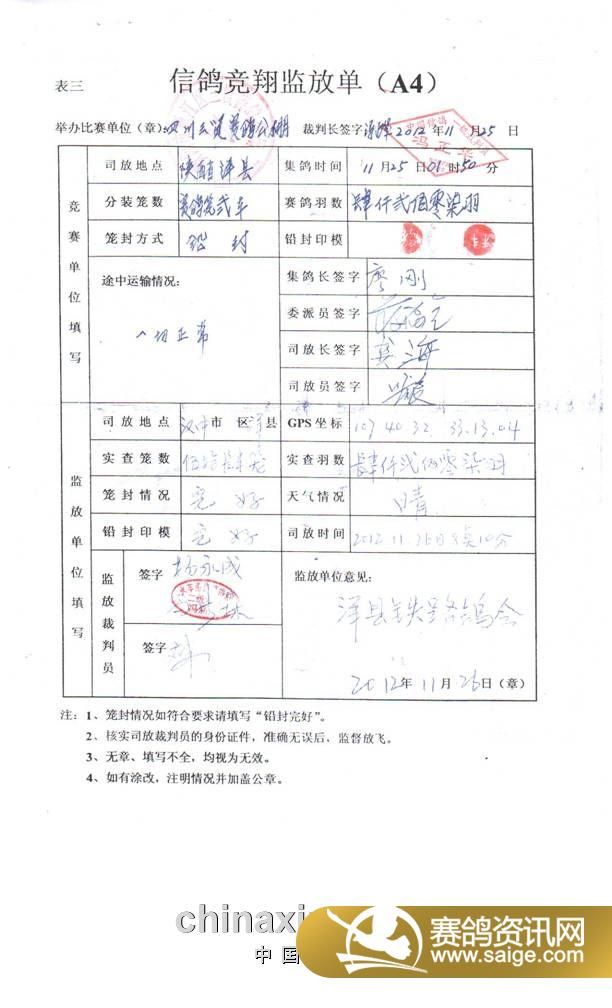 表三
信鸽竞翔监放单（A4）
举办比赛单位（章）： 裁判长签字 2012年11月25日
冯正华
竞赛单位填写
司放地点 陕西洋县 集鸽时间 11月25日01时50分
分装笼数 赛鸽笼贰车 赛鸽羽数 肆仟贰佰零柒羽
笼封方式 铅封 铅封印模
途中运输情况： 集鸽长签字 廖刚
一切正常 委派员签字
司放长签字
司放员签字
监放单位填写
司放地点 汉中市 区洋县 GPS坐标 107 40 32 33.13.04
实查笼数 实查羽数 肆仟贰佰零柒羽
笼封情况 完好 天气情况 晴
铅封印模 完好 司放时间 2012.11.26日8点10分
监放裁判员 签字 杨永成 监放单位意见：
洋县铁路鸽会
签字
2012年11月26日（章）
注：1、笼封情况如符合要求请填写“铅封完好”。
2、核实司放裁判员的身份证件，准确无误后，监督放飞。
3、无章、填写不全，均视为无效。
4、如有涂改，注明情况并加盖公章。
chinaxin
中国
赛鸽资讯网
www.saige.com